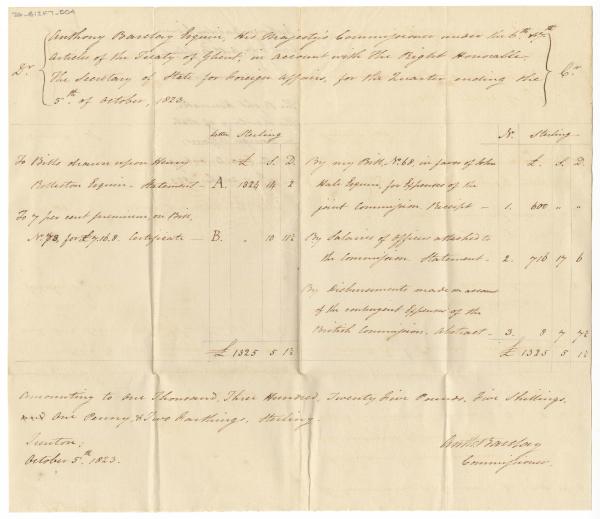 Anthony Barclay Esquire, His Majesty's Commissioner under the 6th & 7th
Articles of the Treaty of Ghent, in account with the Right Honorable
Dr. The Secretary of State for Foreign Affairs, for the Quarter ending the Cr.
5th of October, 1823.
Letter Sterling
£. S. D.
To Bills drawn upon Henry
Rolleston Esquire - Statement - A. 1324 14 2
To 7 per cent premium, on Bill,
No. 73, for £7.16.8. Certificate - B. " 10 11½
£ 1325 5 1½
No. Sterling
£. S. D.
By my Bill, No. 68, in favor of John
Hale Esquire, for Expenses of the
joint Commission Receipt - 1. 600 " "
By Salaries of Officers attached to
the Commission. Statement - 2. 716 17 6
By Disbursements made on account
of the contingent Expenses of the
British Commission. Abstract - 3. 8 7 7½
£ 1325 5 1½
Amounting to One Thousand, Three Hundred, Twenty Five Pounds, Five Shillings,
and One Penny, & Two Farthings, Sterling.
October 5th 1823.
Anth: Barclay
Commissioner.